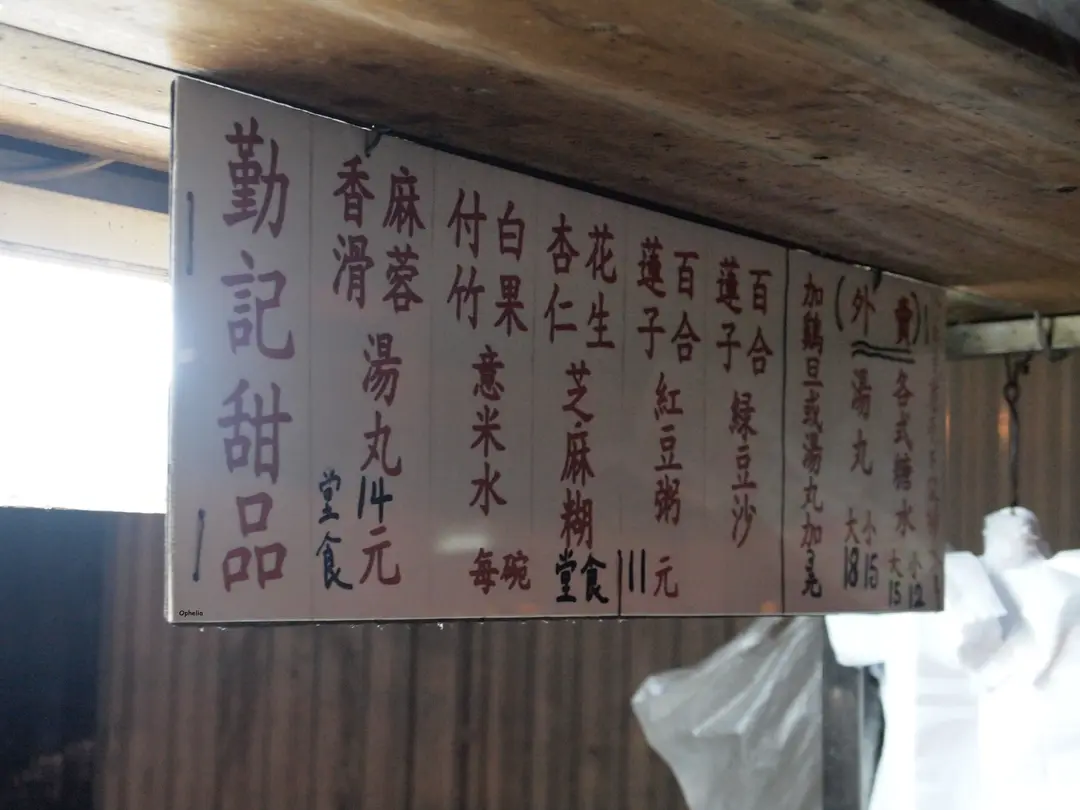 勤記甜品
香滑麻蓉湯丸
堂食14元
付竹白果意米水
杏仁花生芝麻糊
蓮子百合紅豆粥
蓮子百合綠豆沙
每碗堂食11元
加鷄旦或湯丸加3元
(外賣)
湯丸
大18 小15
各式糖水
大15 小12
Ophelia